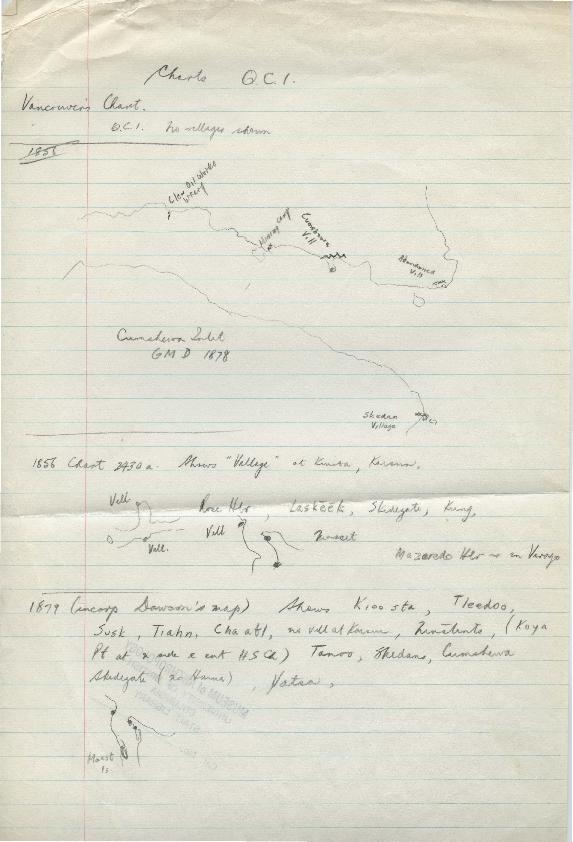 Charts Q.C.I.
Vancouver's Chart.
Q.C.I. No villages shown
1856
Clew Oil Works
Wharf
Mining Camp
Cumshewa
Vill
Abandoned
Vill
Cumshewa Inlet
GMD 1878
Skedan
Village
1856 Chart 2430a. Shows "Village" at Kiusta, Kaisun,
Vill.
Vill.
Rose Hbr, Laskeek, Skidegate, Kung,
Vill
Masset
Mazaredo Hbr in Virago
1879 (incorp Dawson's map) Shows Kioosta, Tleedoo,
Susk, Tiahn, Chaatl, no vill at Kaisun, Ninstints, (Koya
Pt at n side e ent HSCh) Tanoo, Skedans, Cumshewa
Skidegate (no Haina), Yatza,
Masset
Is